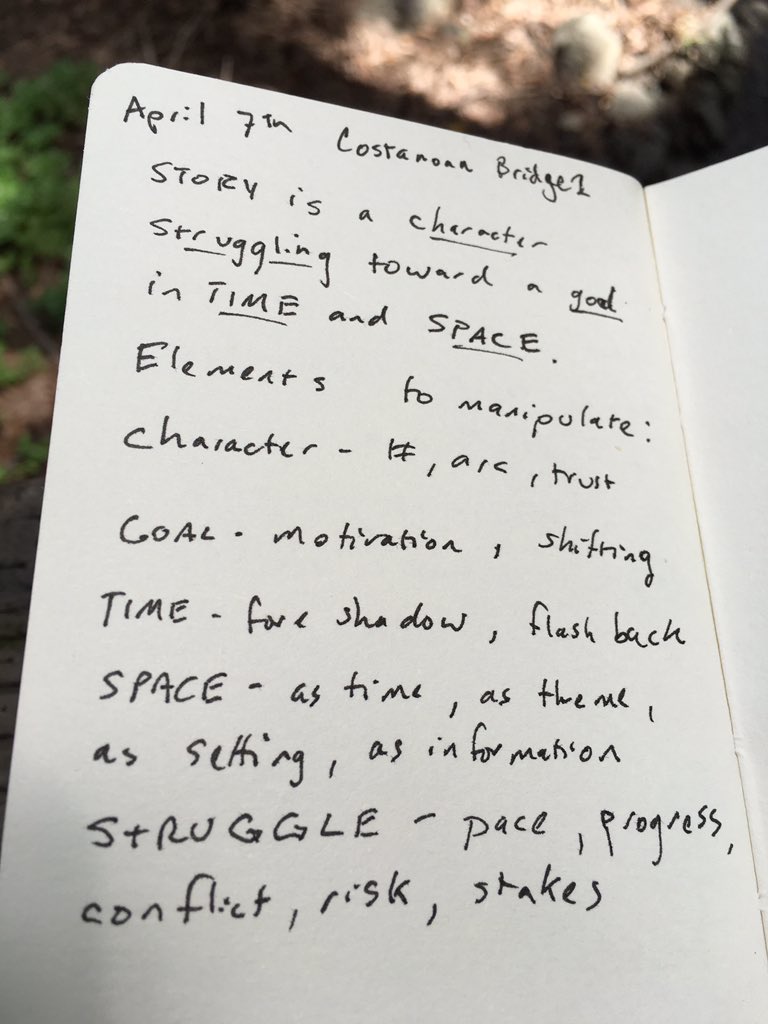 April 7th Costanoan Bridge 1
STORY is a character
struggling toward a goal
in TIME and SPACE.
Elements to manipulate:
Character - #, arc, trust
GOAL - motivation, shifting
TIME - fore shadow, flash back
SPACE - as time, as theme,
as setting, as information
STRUGGLE - pace, progress,
conflict, risk, stakes